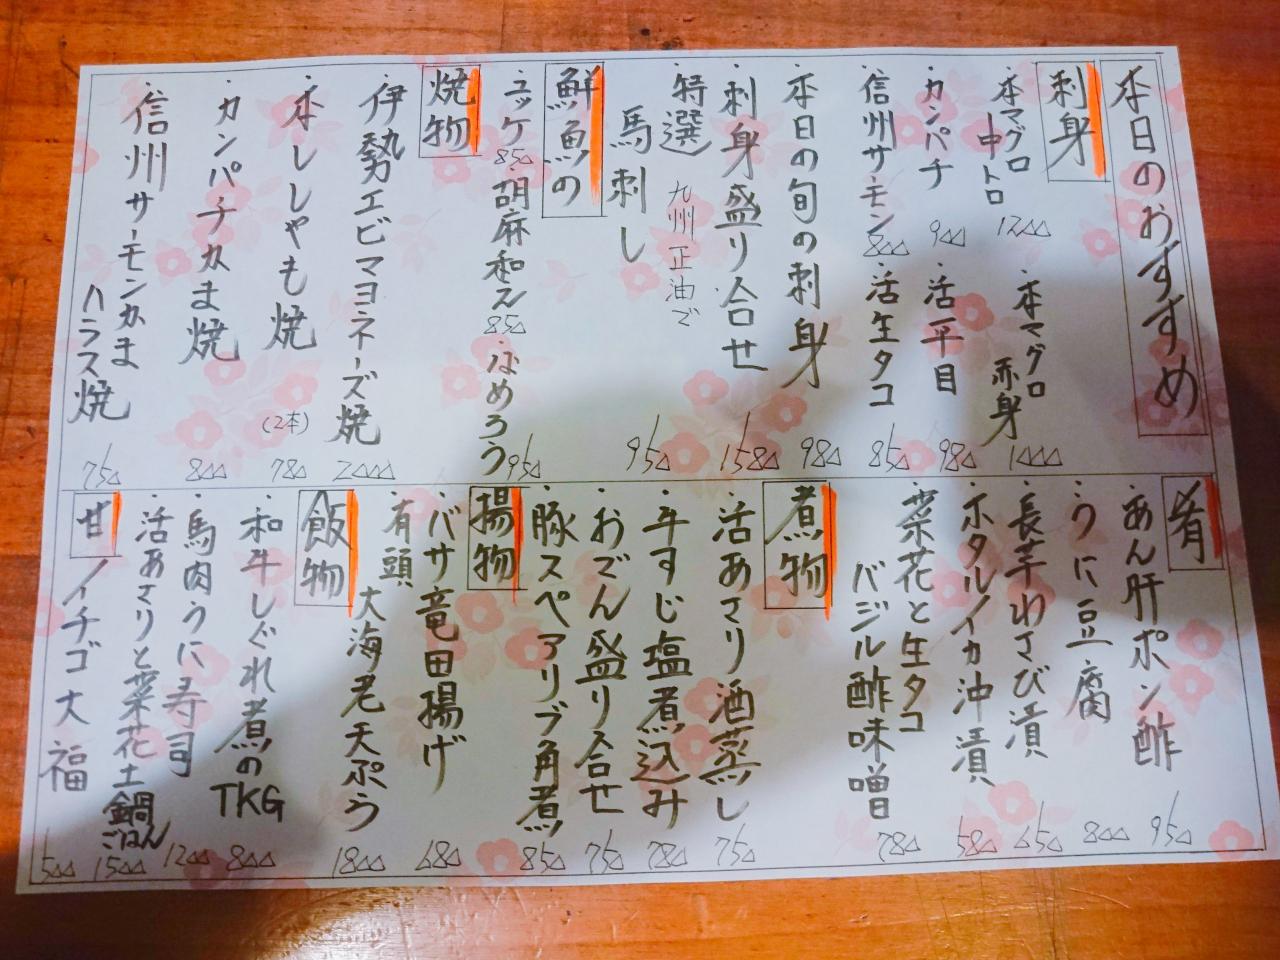 本日のおすすめ
刺身
・本マグロ中トロ 12△△
・本マグロ赤身 1△△△
・カンパチ 9△△
・活平目 98△
・信州サーモン 8△△
・活生タコ 85△
・本日の旬の刺身 98△
・刺身盛り合せ 158△
・特選馬刺し 九州正油で 95△
鮮魚の
・ユッケ 85△ ・胡麻和え 85△ ・なめろう 95△
焼物
・伊勢エビマヨネーズ焼 2△△△
・本ししゃも焼 (2本) 78△
・カンパチかま焼 8△△
・信州サーモンかま
ハラス焼 75△
肴
・あん肝ポン酢 95△
・うに豆腐 8△△
・長芋わさび漬 65△
・ホタルイカ沖漬 58△
・菜花と生タコ
バジル酢味噌 78△
煮物
・活あさり酒蒸し 75△
・牛すじ塩煮込み 78△
・おでん盛り合せ 75△
・豚スペアリブ角煮 85△
揚物
・バサ竜田揚げ 68△
・有頭大海老天ぷら 18△△
飯物
・和牛しぐれ煮のTKG 8△△
・馬肉うに寿司 12△△
・活あさりと菜花土鍋ごはん 15△△
甘
イチゴ大福 5△△